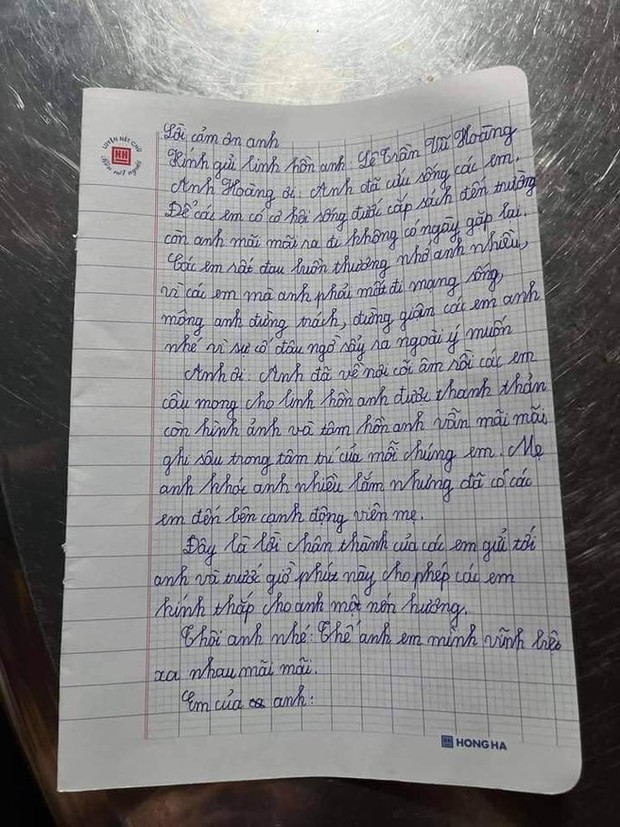 LUYỆN NÉT CHỮ
HH
RÈN NẾT NGƯỜI
Lời cảm ơn anh
Kính gửi linh hồn anh Lê Trần Vũ Hoàng
Anh Hoàng ơi. Anh đã cứu sống các em.
Để các em có cơ hội sống được cắp sách đến trường
còn anh mãi mãi ra đi không có ngày gặp lại.
Các em rất đau buồn thương nhớ anh nhiều,
vì các em mà anh phải mất đi mạng sống,
mông anh đừng trách, đừng giận các em anh
nhé vì sự cố đâu ngờ sảy ra ngoài ý muốn
Anh ơi. Anh đã về nơi cõi âm rồi các em
cầu mong cho linh hồn anh được thanh thản
còn hình ảnh và tâm hồn anh vẫn mãi mãi
ghi sâu trong tâm trí của mỗi chúng em. Mẹ
anh khóc anh nhiều lắm nhưng đã có các
em đến bên cạnh động viên mẹ.
Đây là lời chân thành của các em gửi tới
anh và trước giờ phút này cho phép các em
kính thắp cho anh một nén hương.
Thôi anh nhé: Thế anh em mình vĩnh biệt
xa nhau mãi mãi.
Em của anh:
HH HONG HA